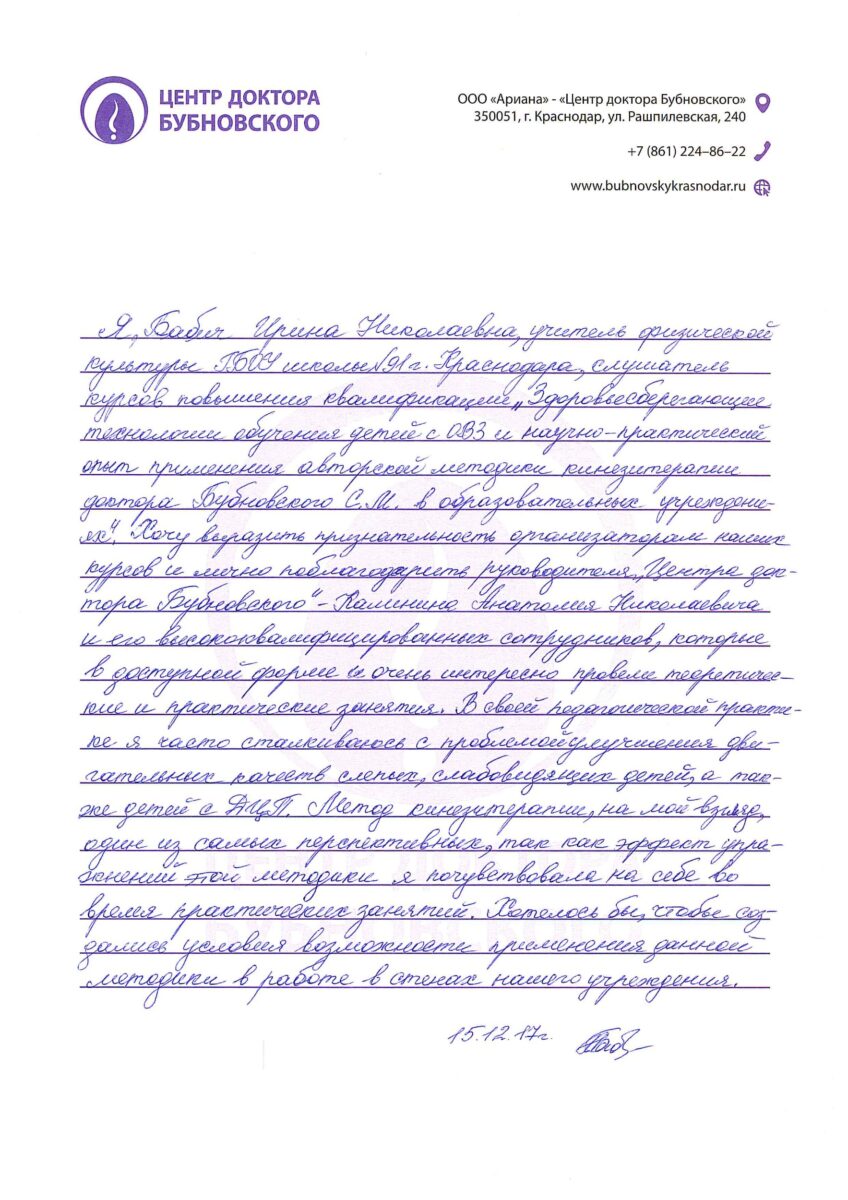 ЦЕНТР ДОКТОРА
БУБНОВСКОГО
ООО «Ариана» - «Центр доктора Бубновского»
350051, г. Краснодар, ул. Рашпилевская, 240
+7 (861) 224–86–22
www.bubnovskykrasnodar.ru
Я, Бабич Ирина Николаевна, учитель физической
культуры ГБОУ школы №91 г. Краснодара, слушатель
курсов повышения квалификации „Здоровьесберегающие
технологии обучения детей с ОВЗ и научно-практический
опыт применения авторской методики кинезитерапии
доктора Бубновского С.М. в образовательных учреждени-
ях". Хочу выразить признательность организаторам наших
курсов и лично поблагодарить руководителя „Центра док-
тора Бубновского" - Калинина Анатолия Николаевича
и его высококвалифицированных сотрудников, которые
в доступной форме и очень интересно провели теоретичес-
кие и практические занятия. В своей педагогической практи-
ке я часто сталкиваюсь с проблемой улучшения дви-
гательных качеств слепых, слабовидящих детей, а так-
же детей с ДЦП. Метод кинезитерапии, на мой взгляд,
один из самых перспективных, так как эффект упра-
жнений этой методики я почувствовала на себе во
время практических занятий. Хотелось бы, чтобы соз-
дались условия возможности применения данной
методики в работе в стенах нашего учреждения.
15.12.17г.